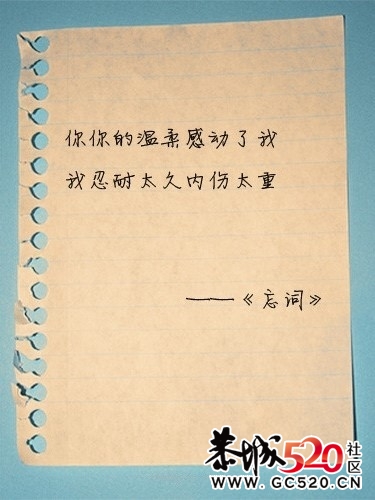 你你的温柔感动了我
我忍耐太久内伤太重
——《忘词》
恭城520社区
WWW.GC520.CN